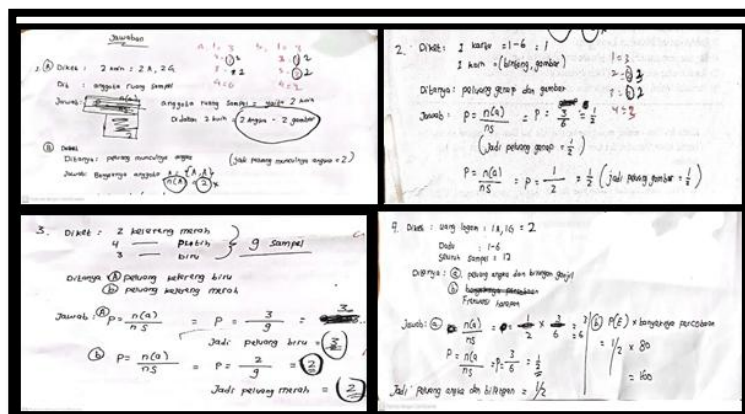 Jawaban
a. 1 = 3
2 =
3 = 2
4 = 6
b. 1 = 3
2 = 2
3 = 2
4 = 2
1. A Diket : 2 koin : 2A, 2G
Dit : anggota ruang sampel
Jawab: n(a) anggota ruang sampel = 2 koin
Didalam 2 koin = 2 angka - 2 gambar
B
Ditanya: peluang munculnya angka (jadi peluang munculnya angka = 2)
Jawab: Banyaknya anggota A = {A, A}
n(A) = 2
2. Diket: 1 kartu = 1-6 : 1
1 koin = (bintang, gambar)
1 = 3
2 = 2
3 = 2
4 = 3
Ditanya: peluang genap dan gambar
Jawab : P = n(a) / ns = P = 3/6 = 1/2
(jadi peluang genap = 1/2)
P = n(a) / ns = P = 1/2 = 1/2 (jadi peluang gambar = 1/2)
3. Diket : 2 kelereng merah
4 — putih
3 — biru
9 sampel
Ditanya A peluang kelereng biru
b peluang kelereng merah
Jawab : A P = n(a) / ns = P = 3/9 = 3
Jadi peluang biru = 3
b P = n(a) / ns = P = 2/9 = 2
Jadi peluang merah = 2
4. Diket : uang logam : 1A, 1G = 2
Dadu : 1-6
Seluruh sampel = 12
Ditanya : a peluang angka dan bilangan ganjil
b
Frekuensi harapan
Jawab: a n(a) / ns = P = 1/2 x 3/6 = 3/6
P = n(a / ns = P = 3/6 = 1/2
b P(E) x banyaknya percobaan
= 1/2 x 80
= 160
Jadi peluang angka dan bilangan = 1/2